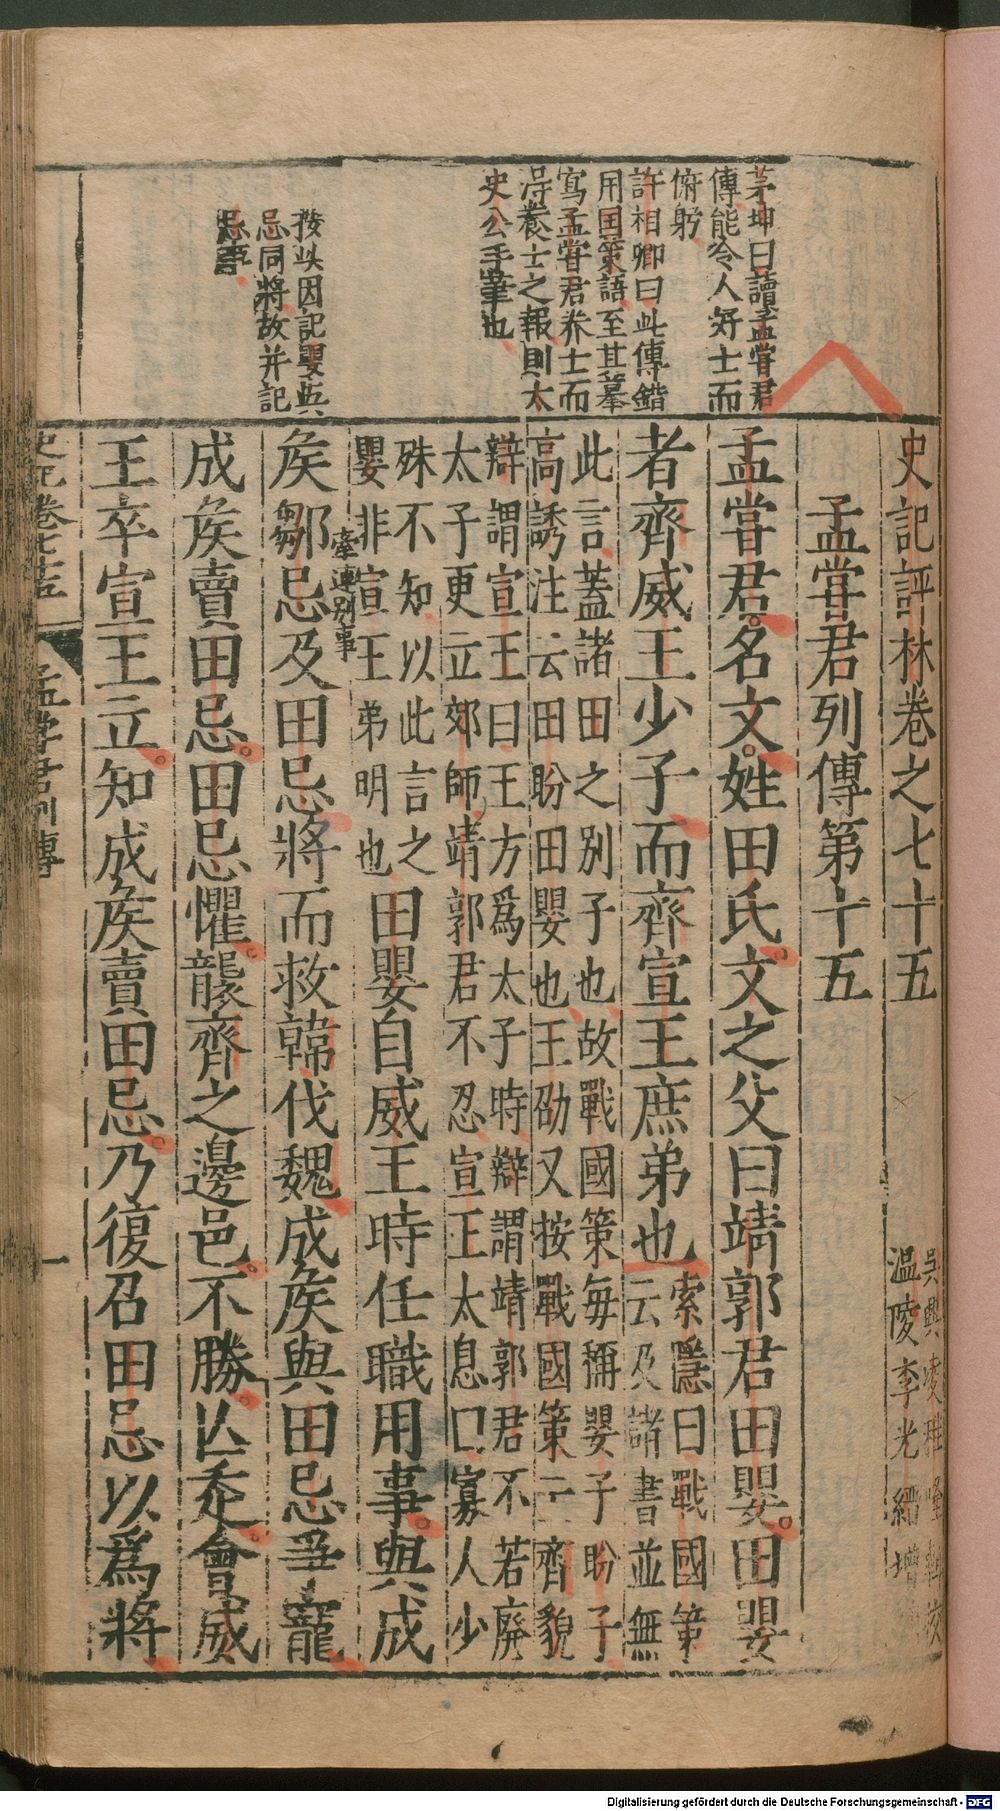 茅坤曰讀孟嘗君
傳能令人好士而
俯躬
許相卿曰此傳錯
用国策語至其摹
寫孟嘗君养士而
淂養士之報則太
史公手筆也
按此因記嬰與
忌同將故并記
忌事
史記評林卷之七十五
吳興凌稚隆輯校
溫陵李光縉增
孟嘗君列傳第十五
孟嘗君名文姓田氏文之父曰靖郭君田嬰田嬰
者齊威王少子而齊宣王庶弟也
索隱曰戰國策
云及諸書並無
此言蓋諸田之別子也故戰國策每稱嬰子盼子
高誘注云田盼田嬰也王劭又按戰國策云齊貌
辯謂宣王曰王方爲太子時辯謂靖郭君不若廢
太子更立郊師靖郭君不忍宣王太息曰寡人少
殊不知以此言之
嬰非宣王弟明也
田嬰自威王時任職用事與成
牽連别事
矦鄒忌及田忌將而救韓伐魏成矦與田忌爭寵
成矦賣田忌田忌懼襲齊之邊邑不勝亾走會威
王卒宣王立知成矦賣田忌乃復召田忌以爲將
史記卷七十五
孟嘗君列傳
一
Digitalisierung gefördert durch die Deutsche Forschungsgemeinschaft - DFG